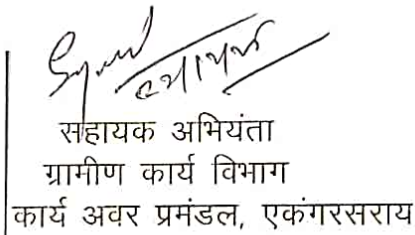 सहायक अभियंता
ग्रामीण कार्य विभाग
कार्य अवर प्रमंडल, एकंगरसराय